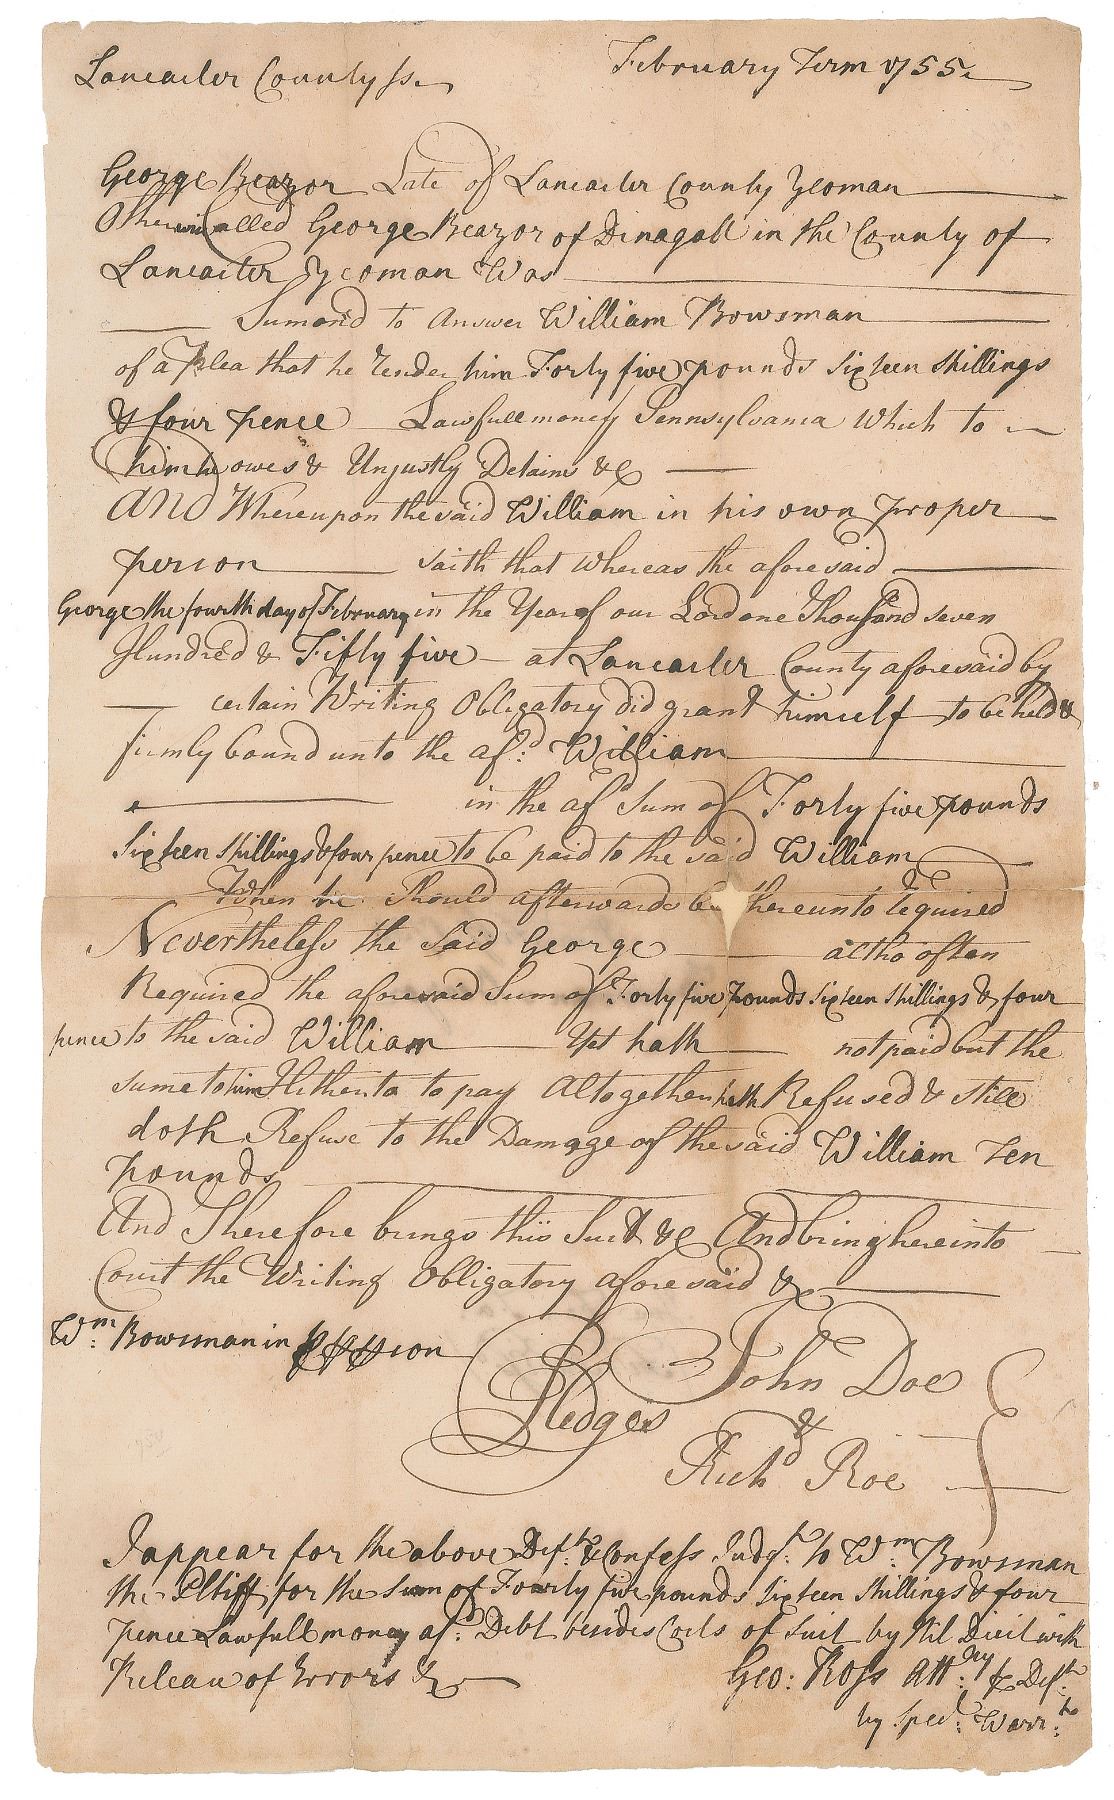 Lancaster County ss. February Term 1755.
George Reazor Late of Lancaster County Yeoman
Otherwise Called George Reazor of Dinagall in the County of
Lancaster Yeoman Was
Sumon'd to Answer William Bowsman
of a Plea that he Render him Forty five pounds Sixteen Shillings
& four pence Lawfull money Pennsylvania Which to
him he owes & Unjustly Detains &c
And Whereupon the said William in his own proper
person saith that whereas the aforesaid
George the fourth day of February in the Year of our Lord one Thousand seven
Hundred & Fifty five at Lancaster County aforesaid by
certain Writing Obligatory did grant himself to be held &
firmly bound unto the afd. William
in the afd Sum of Forty five pounds
Sixteen Shillings & four pence to be paid to the said William
When he Should afterwards be thereunto required
Nevertheless the Said George altho often
Required the aforesaid Sum of Forty five pounds Sixteen Shillings & four
pence to the said William Yet hath not paid but the
same to him Hitherto to pay Altogether hath Refused & still
doth Refuse to the Damage of the said William Ten
pounds
And Therefore brings this Suit &c And bring here into
Court the Writing Obligatory aforesaid &
Wm. Bowsman in person
Pledges John Doe
&
Richd Roe
I appear for the above Deft. & Confess Judgt. to Wm Bowsman
the Pltiff for the Sum of Fourty five pounds Sixteen Shillings & four
pence Lawfull money afd. Debt besides Costs of Suit by Nil Dicit with
Release of Errors &c
Geo: Ross Att:ny for Deft.
by Specl. Warrt.